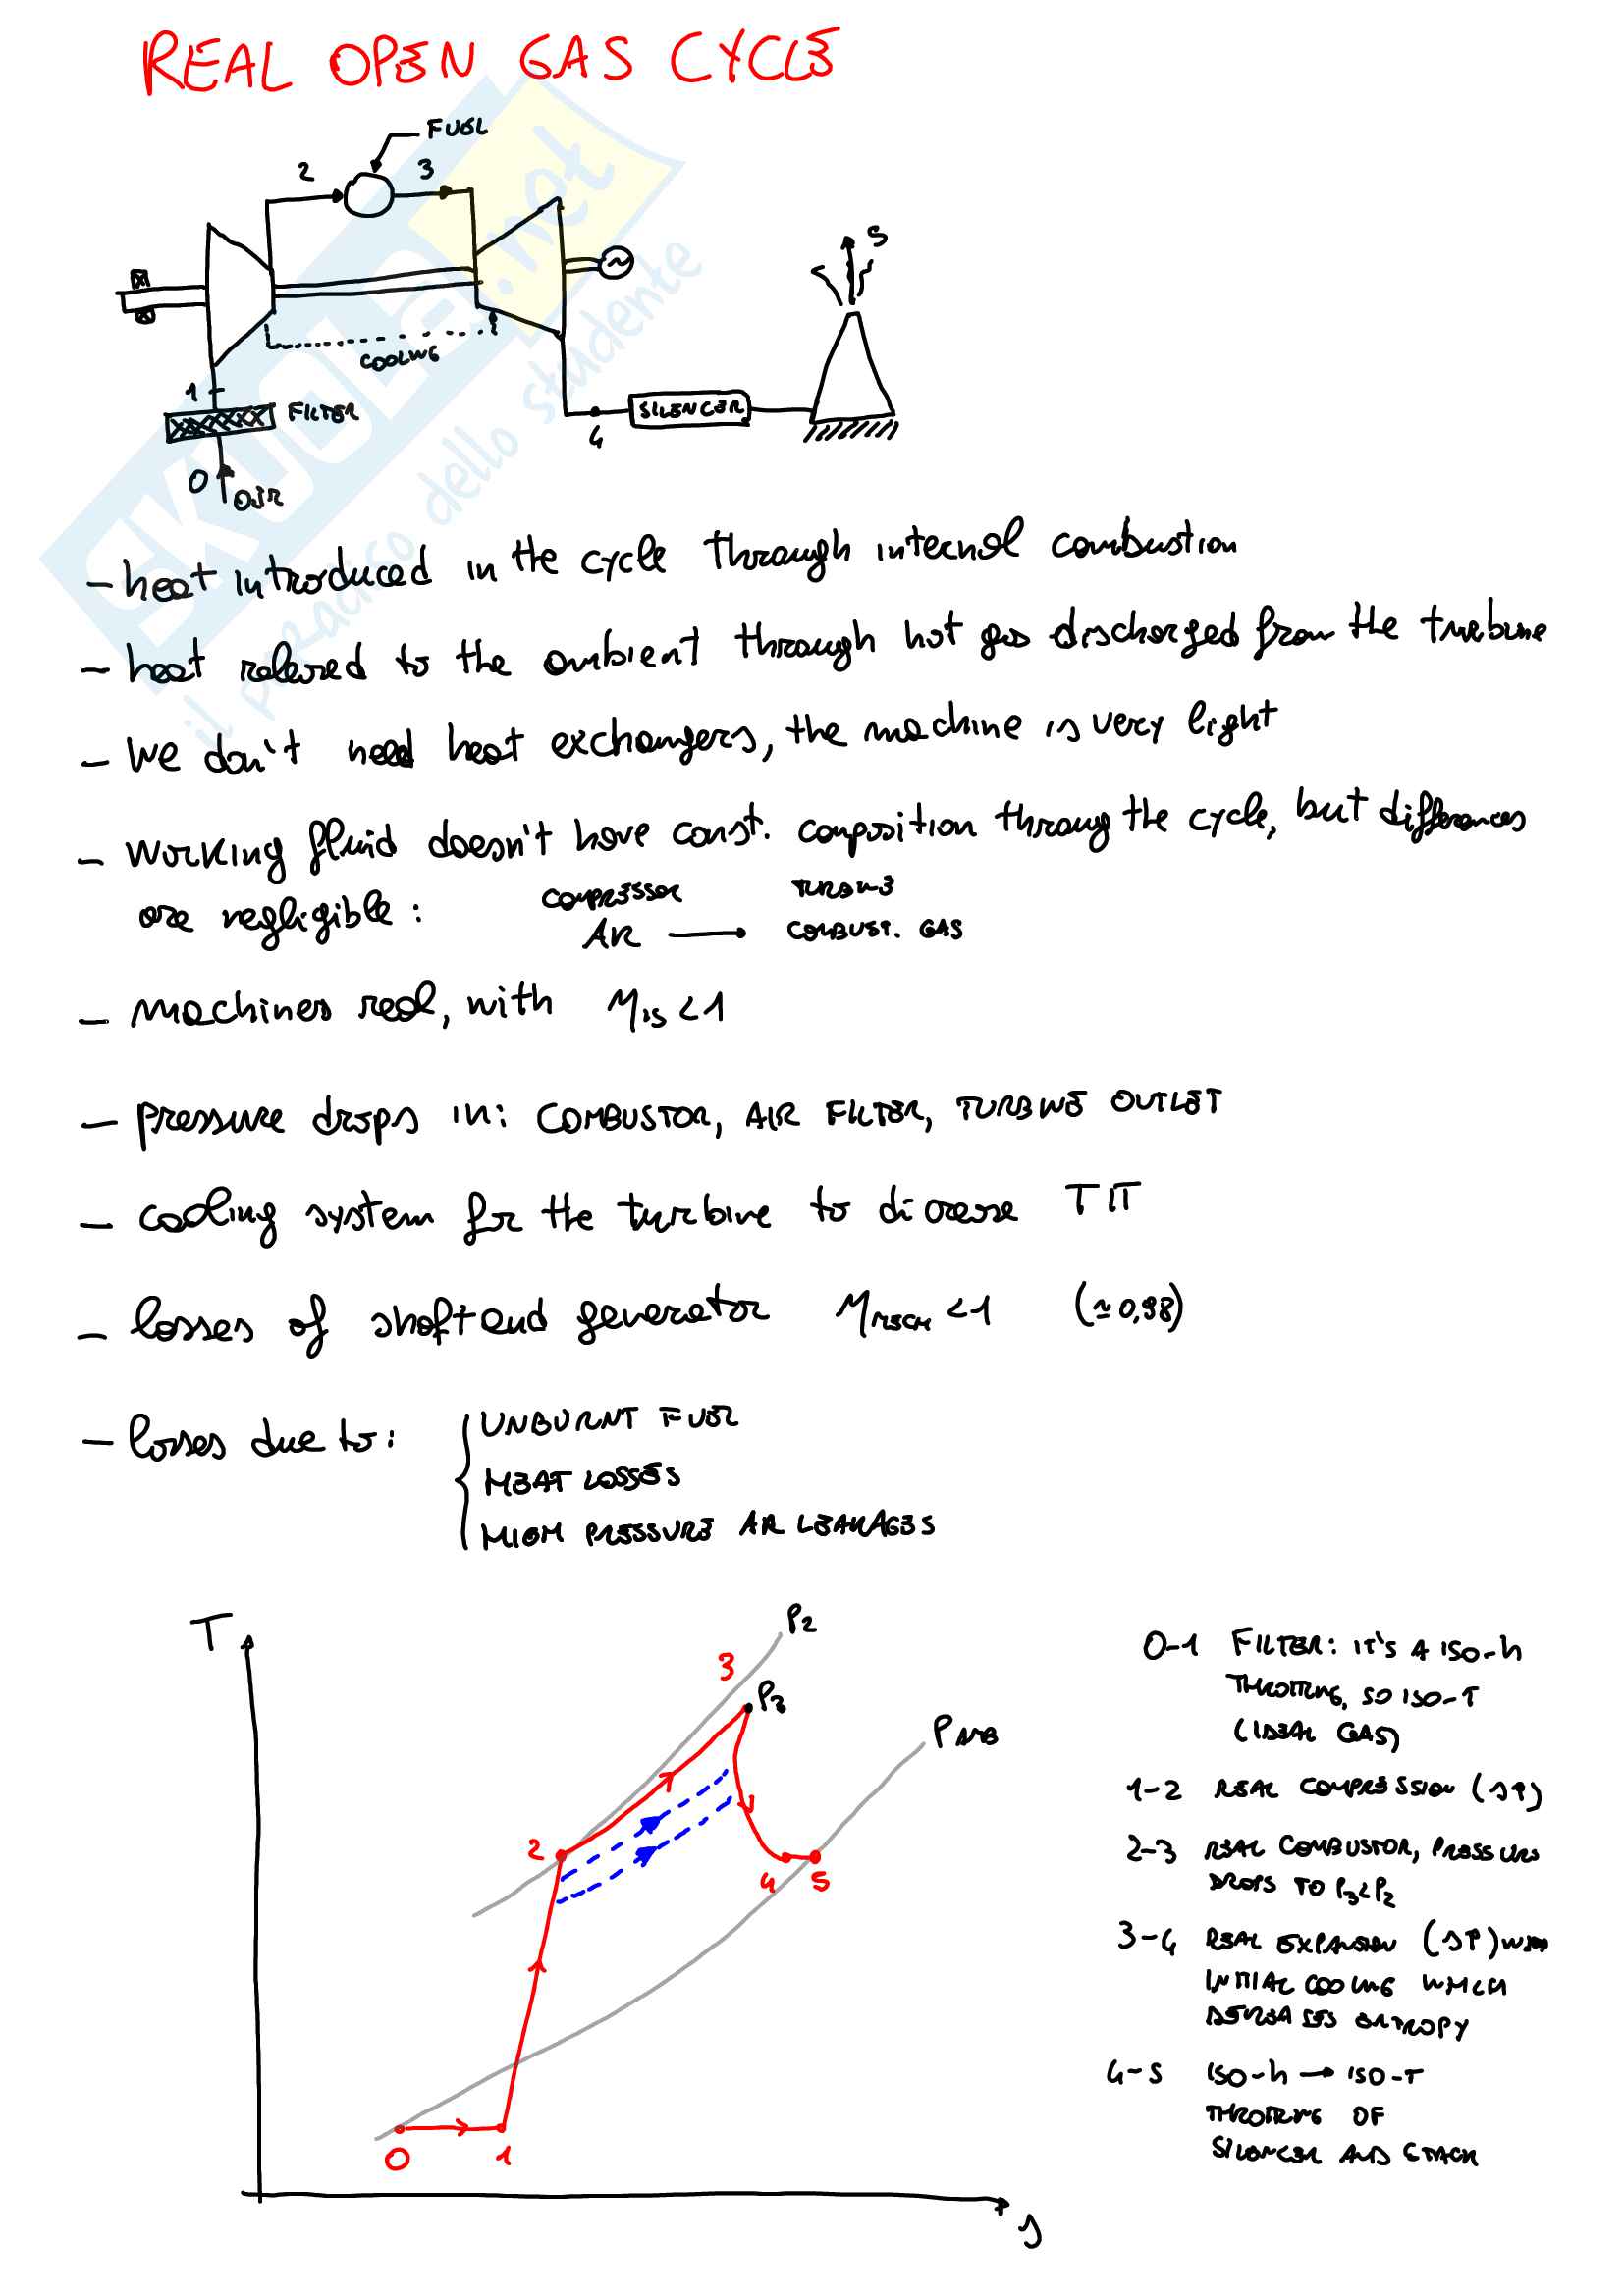 REAL OPEN GAS CYCLE
FUEL
2
3
5
COOLING
1
FILTER
SILENCER
4
0
AIR
SKUOLA.net
il paradiso dello studente
- heat introduced in the cycle through internal combustion
- heat released to the ambient through hot gas discharged from the turbine
- we don't need heat exchangers, the machine is very light
- working fluid doesn't have const. composition throug the cycle, but differences
are negligible:
COMPRESSOR
TURBINE
AIR → COMBUST. GAS
- machines real, with η_IS < 1
- pressure drops in: COMBUSTOR, AIR FILTER, TURBINE OUTLET
- cooling system for the turbine to dicrease TIT
- losses of shaft and generator η_MECH < 1 (≃ 0,98)
- losses due to:
UNBURNT FUEL
HEAT LOSSES
HIGH PRESSURE AIR LEAKAGES
T
P2
3
P3
PAMB
2
4
5
0
1
s
0-1 FILTER: IT'S A ISO-h
THROTTLING, SO ISO-T
(IDEAL GAS)
1-2 REAL COMPRESSION (s↑)
2-3 REAL COMBUSTOR, PRESSURE
DROPS TO P3<P2
3-4 REAL EXPANSION (s↑) WITH
INITIAL COOLING WHICH
DECREASES ENTROPY
4-5 ISO-h → ISO-T
THROTTLING OF
SILENCER AND STACK